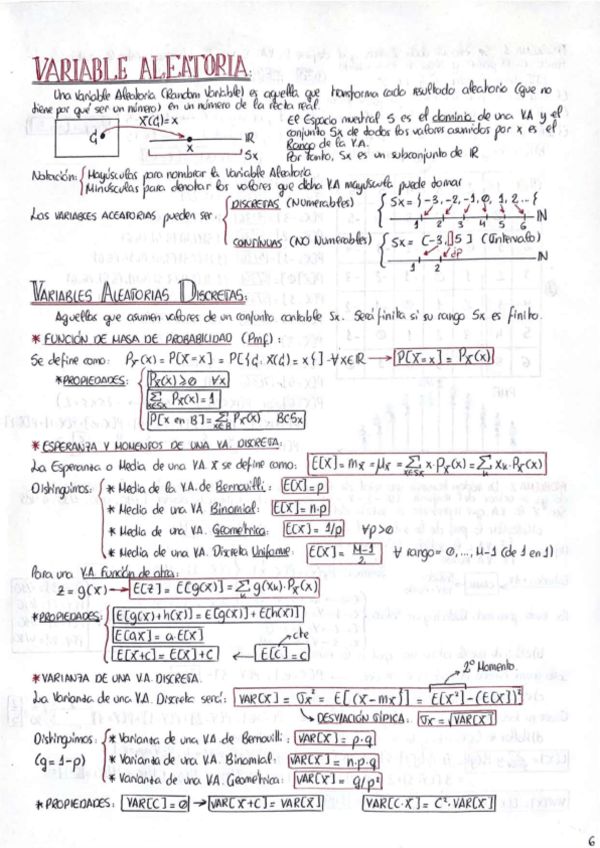 VARIABLE ALEATORIA:
Una Variable Aleatoria (Random Variable) es aquella que transforma cada resultado aleatorio (que no
tiene por qué ser un número) en un número de la recta real.
X(ζ)=x
ζ
x
IR
Sx
El Espacio muestral S es el dominio de una V.A y el
conjunto Sx de todos los valores asumidos por x es el
Rango de la V.A.
Por tanto, Sx es un subconjunto de IR
Notación: { Mayúsculas para nombrar la Variable Aleatoria
Minúsculas para denotar los valores que dicha V.A mayúscula puede tomar
LOS VARIABLES ALEATORIAS pueden ser: { DISCRETAS (Numerables) { Sx = {-3,-2,-1,0,1,2...}
1 2 3 4 5 6 IN
CONTÍNUAS (NO Numerables) { Sx = [-3, 5] (Intervalo)
1 2 ¿? IN
VARIABLES ALEATORIAS DISCRETAS:
Aquellas que asumen valores de un conjunto contable Sx. Será finita si su rango Sx es finito.
* FUNCIÓN DE MASA DE PROBABILIDAD (Pmf):
Se define como: Px(x) = P[X=x] = P[{ζ: X(ζ)=x}] ∀x∈IR → P[X=x] = Px(x)
*PROPIEDADES: { Px(x) ≥ 0 ∀x
∑x∈Sx Px(x) = 1
P[X en B] = ∑x∈B Px(x) . B⊂Sx
* ESPERANZA Y MOMENTOS DE UNA V.A. DISCRETA:
La Esperanza o Media de una V.A. X se define como: E[X] = mx = μx = ∑x∈Sx x·Px(x) = ∑k xk·Px(x)
Distinguimos: { * Media de la V.A. de Bernouilli: E[X]=p
* Media de una V.A. Binomial: E[X]=n·p
* Media de una V.A. Geométrica: E[X] = 1/p ∀p>0
* Media de una V.A. Discreta Uniforme: E[X] = M-1/2 ∀ rango= 0,..., M-1 (de 1 en 1)
Para una V.A Función de otra:
Z = g(X) → E[Z] = E[g(X)] = ∑k g(xk)·Px(x)
*PROPIEDADES: { E[g(X)+h(X)] = E[g(X)] + E[h(X)]
E[aX] = a·E[X]
cte
E[X+C] = E[X]+C ← E[C]=C
*VARIANZA DE UNA V.A. DISCRETA.
2º Momento.
La Varianza de una V.A. Discreta será: VAR[X] = σx² = E[(X-mx)²] = E[X²]-(E[X])²
DESVIACIÓN TÍPICA: σx = √VAR[X]
Distinguimos: { * Varianza de una V.A. de Bernouilli: VAR[X] = p·q
(q=1-p) * Varianza de una V.A. Binomial: VAR[X] = n·p·q
* Varianza de una V.A. Geométrica: VAR[X] = q/p²
*PROPIEDADES: VAR[C]=0 → VAR[X+C] = VAR[X] VAR[C·X] = C²·VAR[X]
6